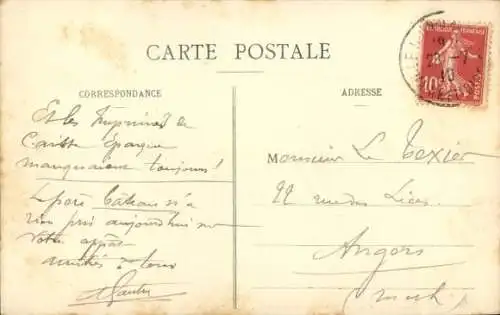 CARTE POSTALE
CORRESPONDANCE
ADRESSE
REPUBLIQUE FRANÇAISE
10c
POSTES
Et les Imprimés de
Caisse Epargne
manquaient toujours!
Le père Cateau n'a
rien pris aujourd'hui
Votre
amitiés à tous
Monsieur Le Texier
22 rue des Lices
Angers